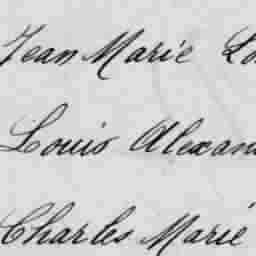 Jean Marie Lo
Louis Alexan
Charles Marie